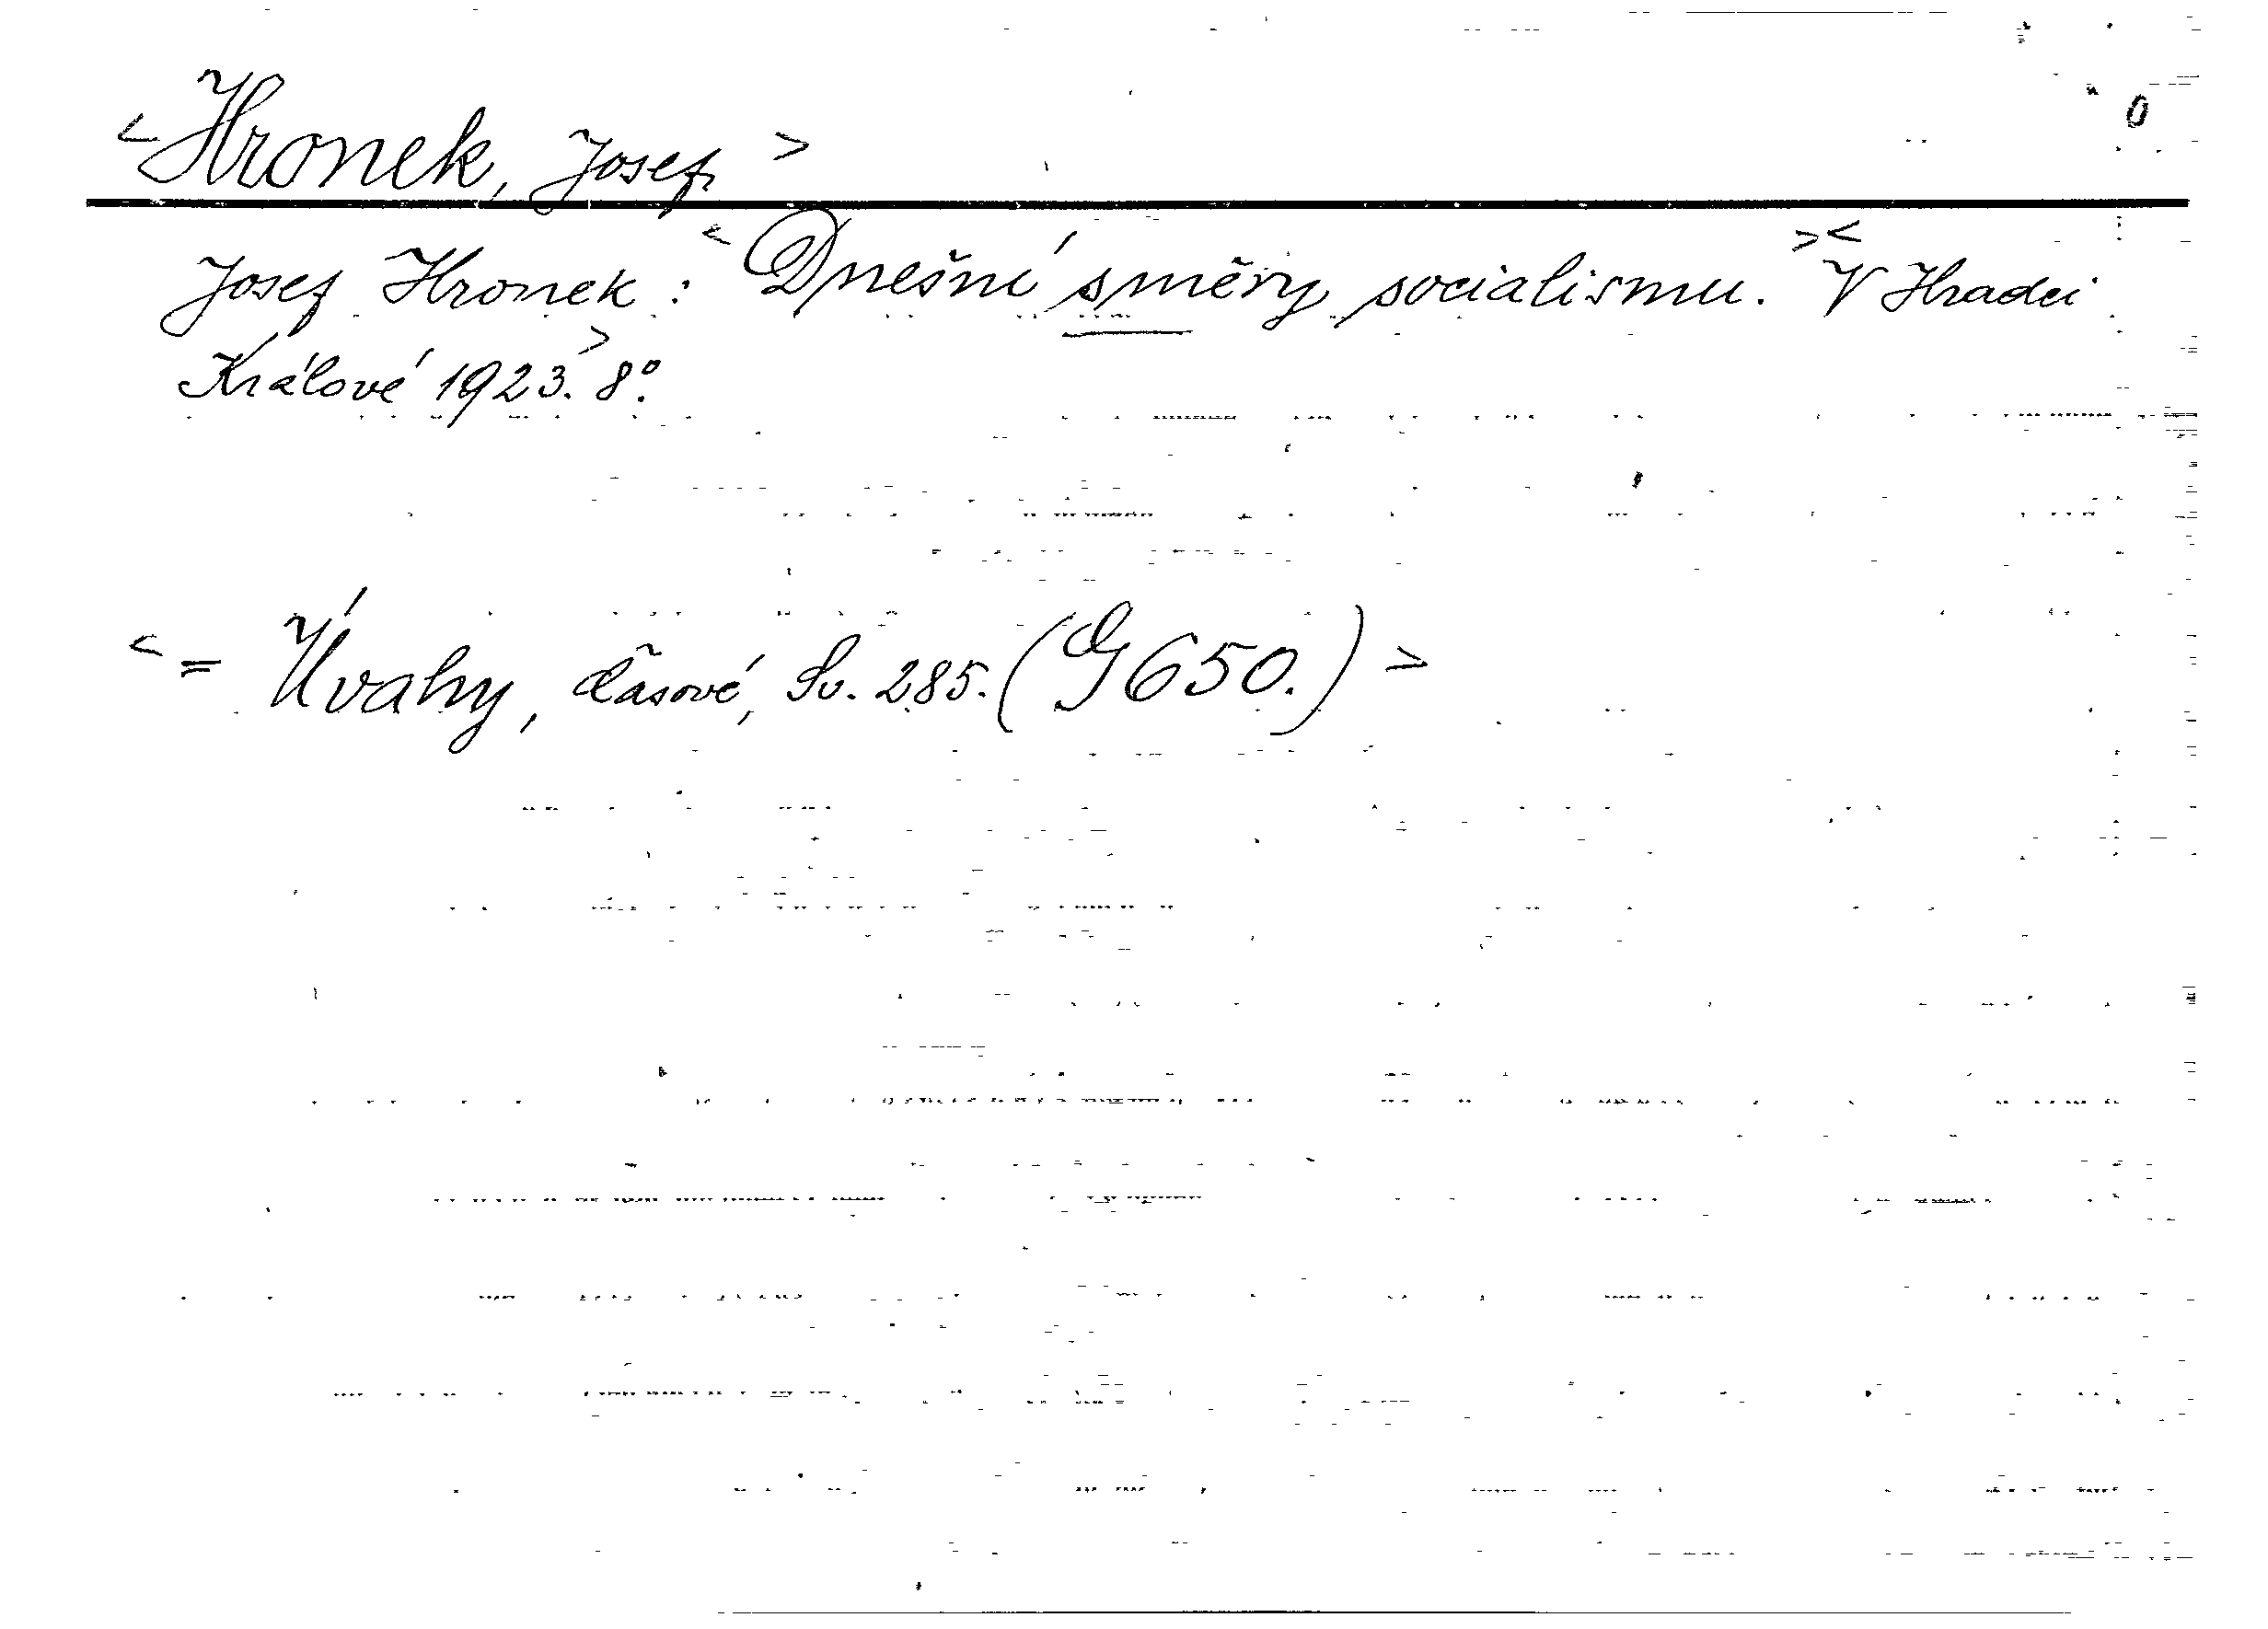 0
<Hronek, Josef.>
Josef Hronek: <Dnešní směry socialismu.><V Hradci
Králové 1923.> 8°.
<= Úvahy, časové, Sv. 285. (G 650.)>